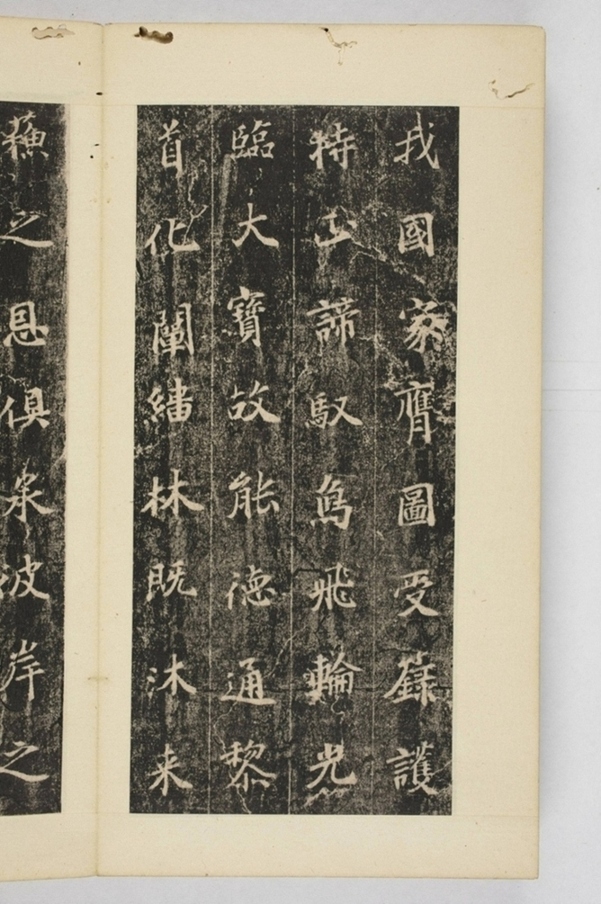 我國家膺圖受籙護
持正諦馭鳥飛輪光
臨大寶故能德通黎
首化闡繙林既沐来
蘇之恩俱承波岸之